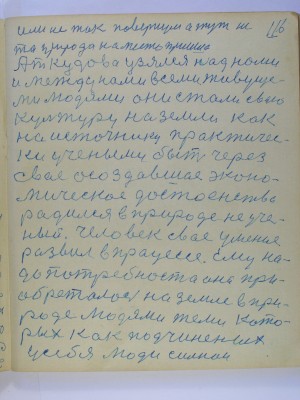 или не так повернум а тут не
116
та природа на место пришло
А откудова узялся над нами
и между нами всеми живуще-
ми людями они стали свою
культуру на земли как
на источнику практичес-
ки учеными быть через
свое осоздавшае эконо-
мическое достоенство
радился в природе не уче-
ный. Человек свае умения
развил в працессе. Ему на-
до потребноста она при-
обреталось на земле в при-
роде людями теми кото-
рых как подчиненных
у себя люди силной